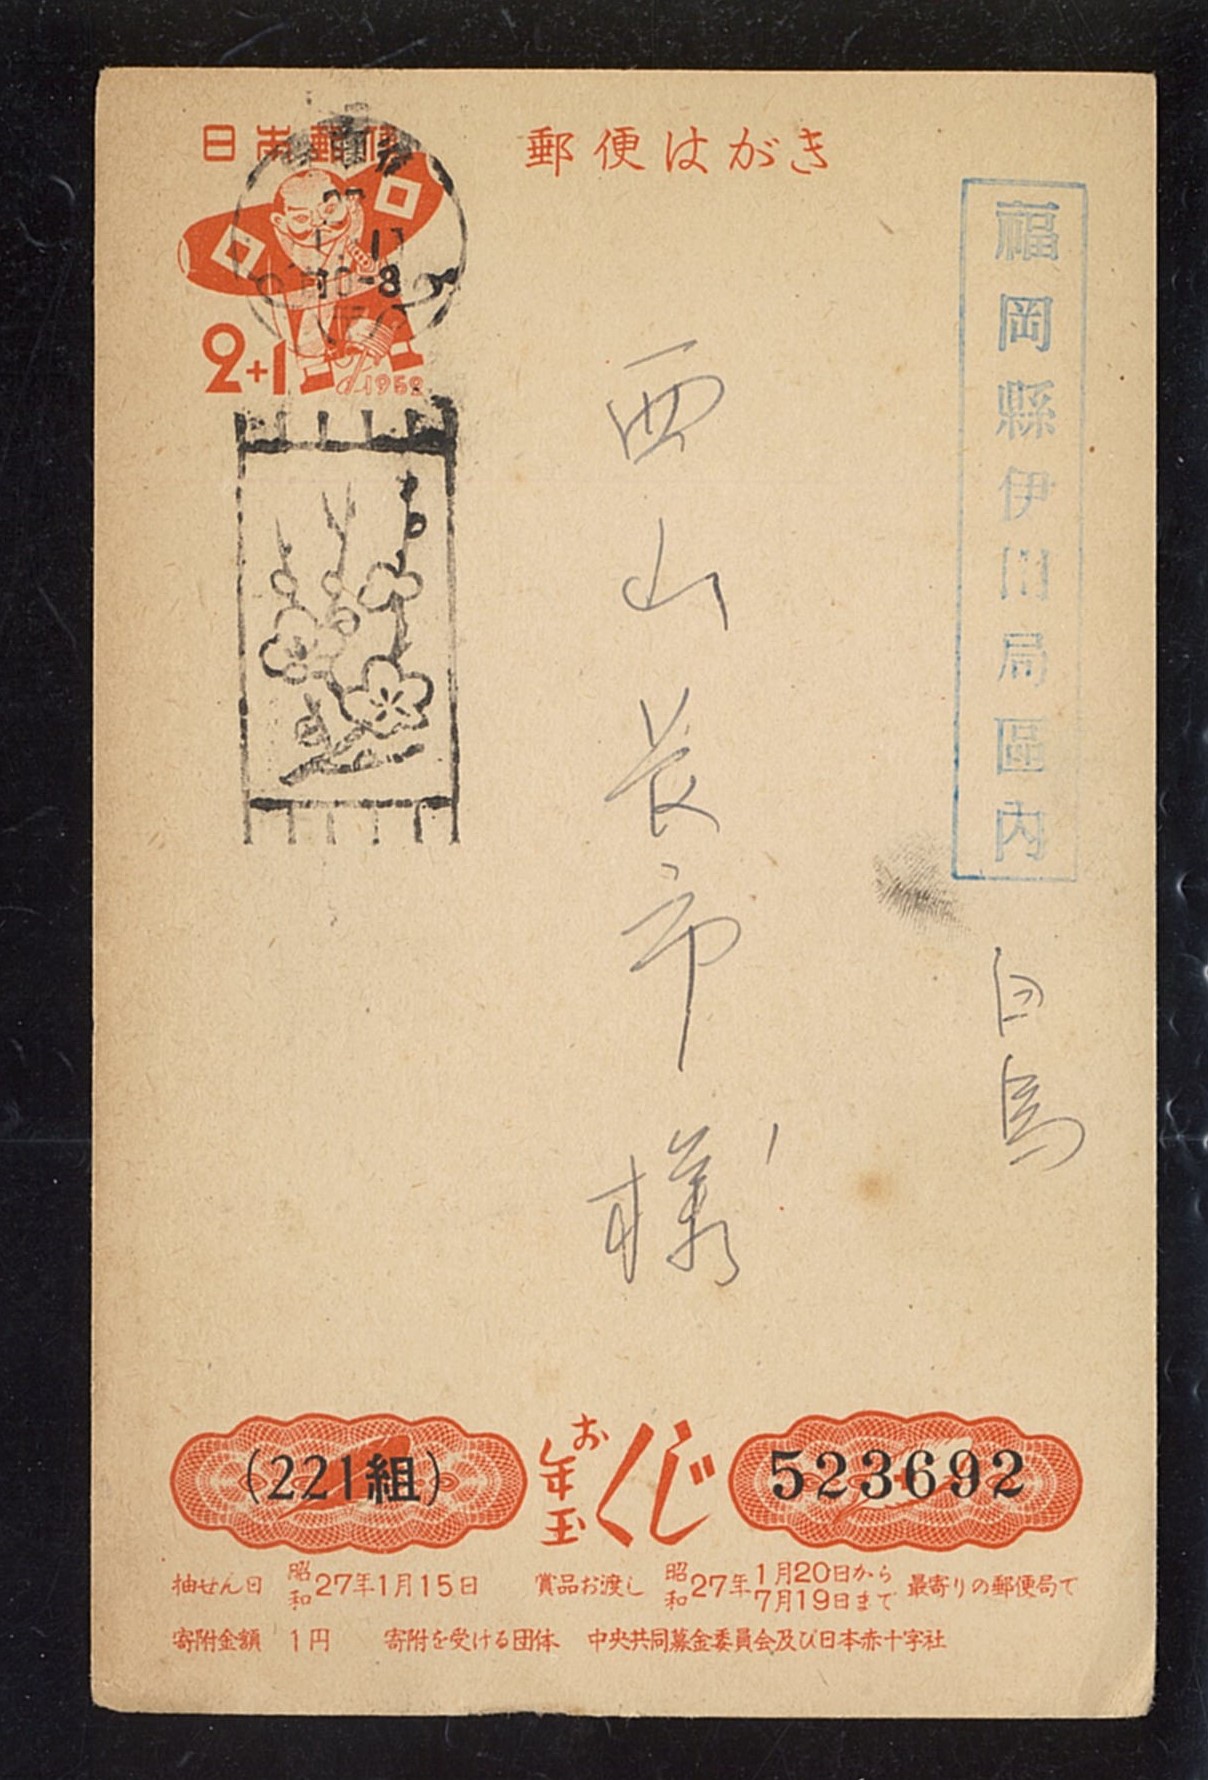 日本郵便
郵便はがき
2+1
1952
福岡縣伊川局區內
白鳥
西山長市様
(221組)
お年玉くじ
523692
抽せん日 昭和27年1月15日 賞品お渡し 昭和27年1月20日から7月19日まで 最寄りの郵便局で
寄附金額 1円 寄附を受ける団体 中央共同募金委員会及び日本赤十字社